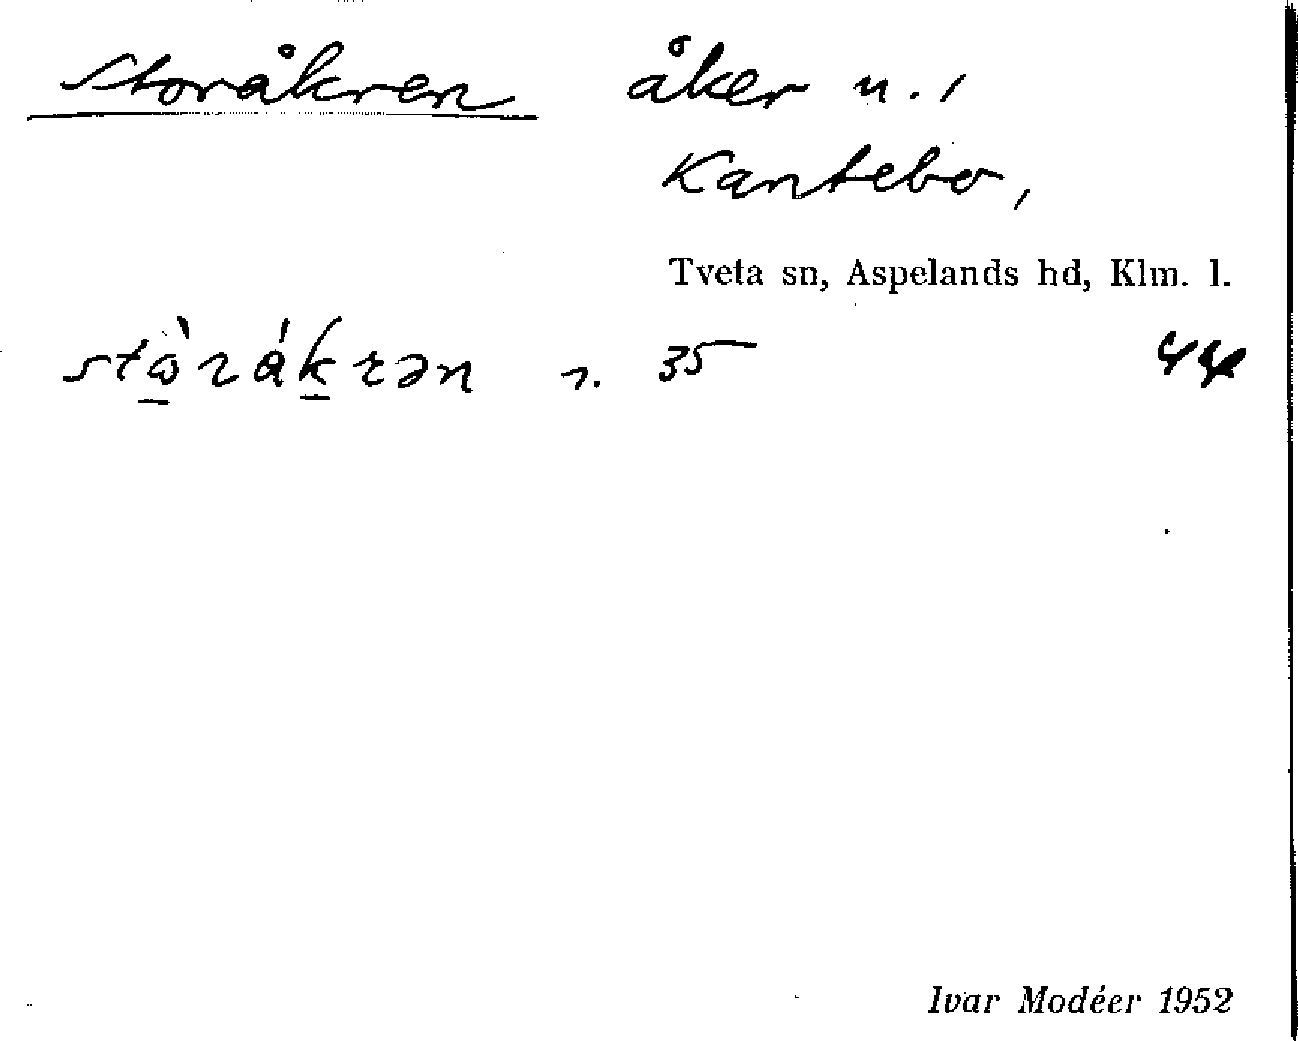 Storåkren åker n. 1
Kantebo,
Tveta sn, Aspelands hd, Klm. l.
stὼ̠rák̠rən n. 35 44
Ivar Modéer 1952